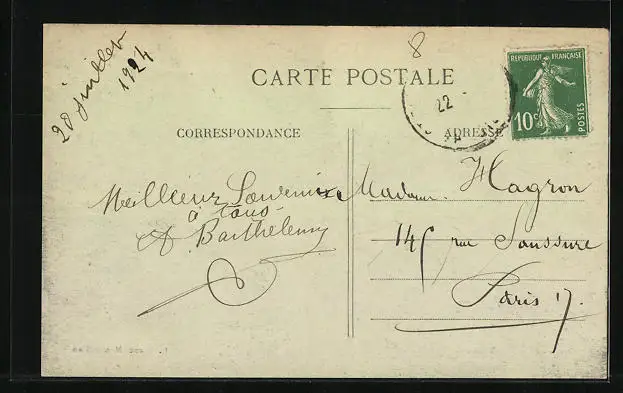 20 juillet
1924
8
CARTE POSTALE
22
RÉPUBLIQUE FRANÇAISE
10c
POSTES
CORRESPONDANCE
ADRESSE
Meilleur Souvenir
à tous
Barthelemy
Madame Hagron
145 rue Saussure
Paris 17.